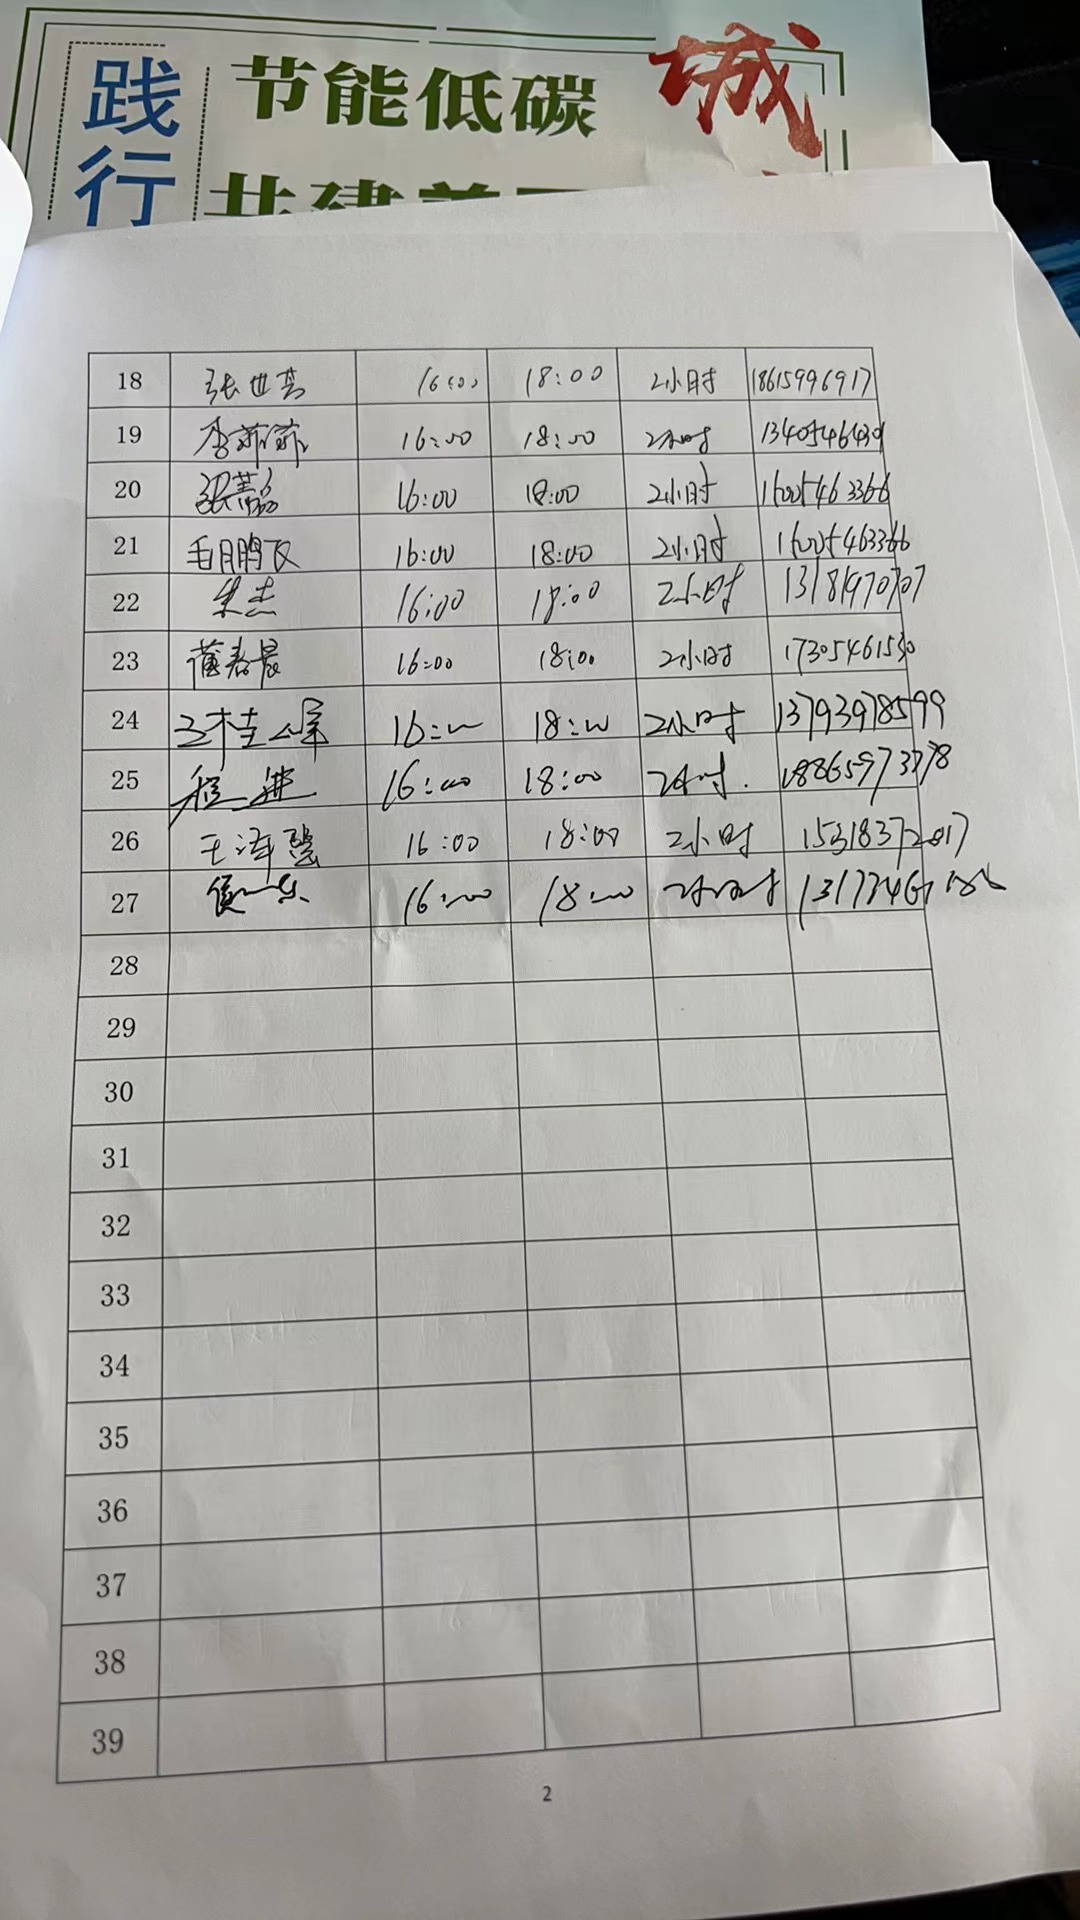 践行
节能低碳
城
共建美
18 张世芸 16:00 18:00 2小时 18615996917
19 李菲菲 16:00 18:00 2小时
20 16:00 18:00 2小时 15005463366
21 毛鹏飞 16:00 18:00 2小时 15005463366
22 朱杰 16:00 18:00 2小时
23 16:00 18:00 2小时 17305461530
24 王桂峰 16:00 18:00 2小时 13793978599
25 程进 16:00 18:00 2小时. 18865973378
26 王泽 16:00 18:00 2小时 15318372017
27 16:00 18:00 2小时
28
29
30
31
32
33
34
35
36
37
38
39
2